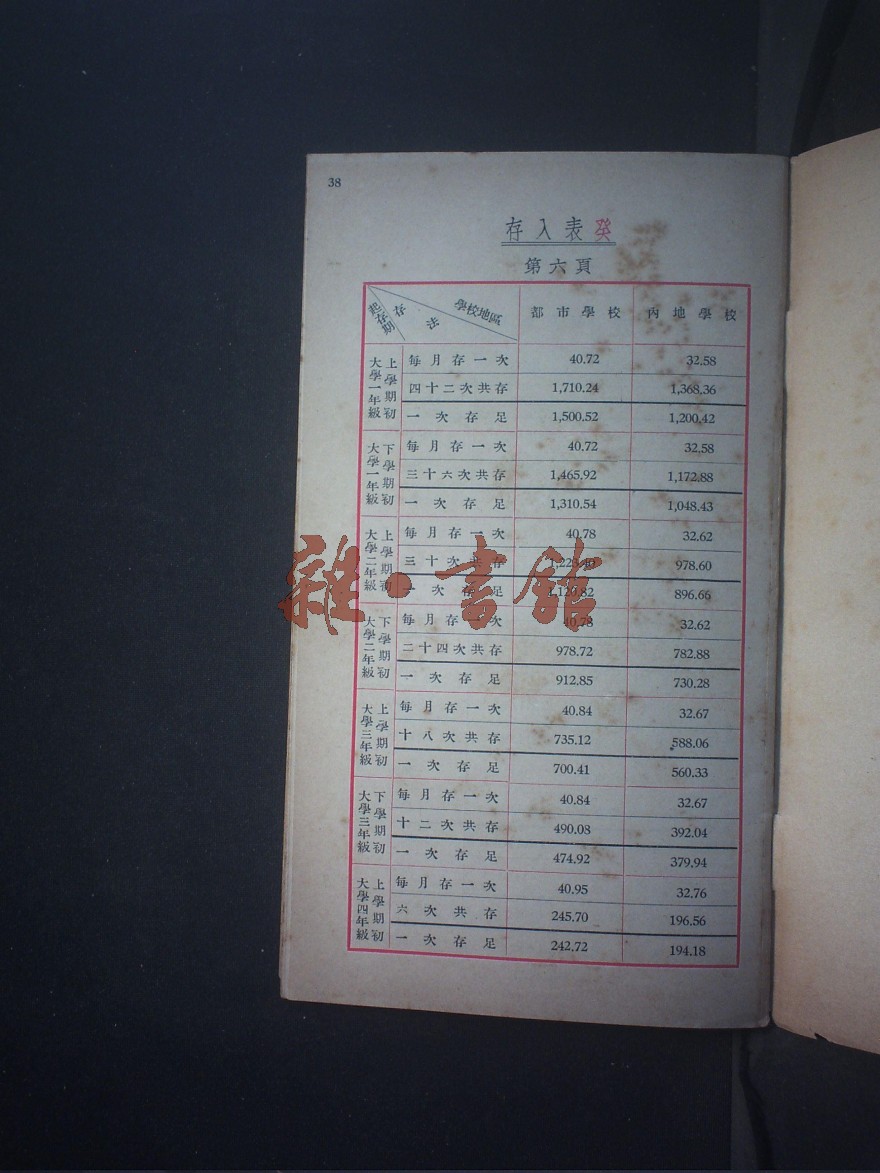 38
存入表癸
第六頁
起存期 存法 學校地區 都市學校 內地學校
大學一年級上學期初 每月存一次 40.72 32.58
四十二次共存 1,710.24 1,368.36
一次存足 1,500.52 1,200.42
大學一年級下學期初 每月存一次 40.72 32.58
三十六次共存 1,465.92 1,172.88
一次存足 1,310.54 1,048.43
大學二年級上學期初 每月存一次 40.78 32.62
三十次共存 978.60
一次存足 896.66
大學二年級下學期初 每月存一次 40.78 32.62
二十四次共存 978.72 782.88
一次存足 912.85 730.28
大學三年級上學期初 每月存一次 40.84 32.67
十八次共存 735.12 588.06
一次存足 700.41 560.33
大學三年級下學期初 每月存一次 40.84 32.67
十二次共存 490.08 392.04
一次存足 474.92 379.94
大學四年級上學期初 每月存一次 40.95 32.76
六次共存 245.70 196.56
一次存足 242.72 194.18
雜·書館